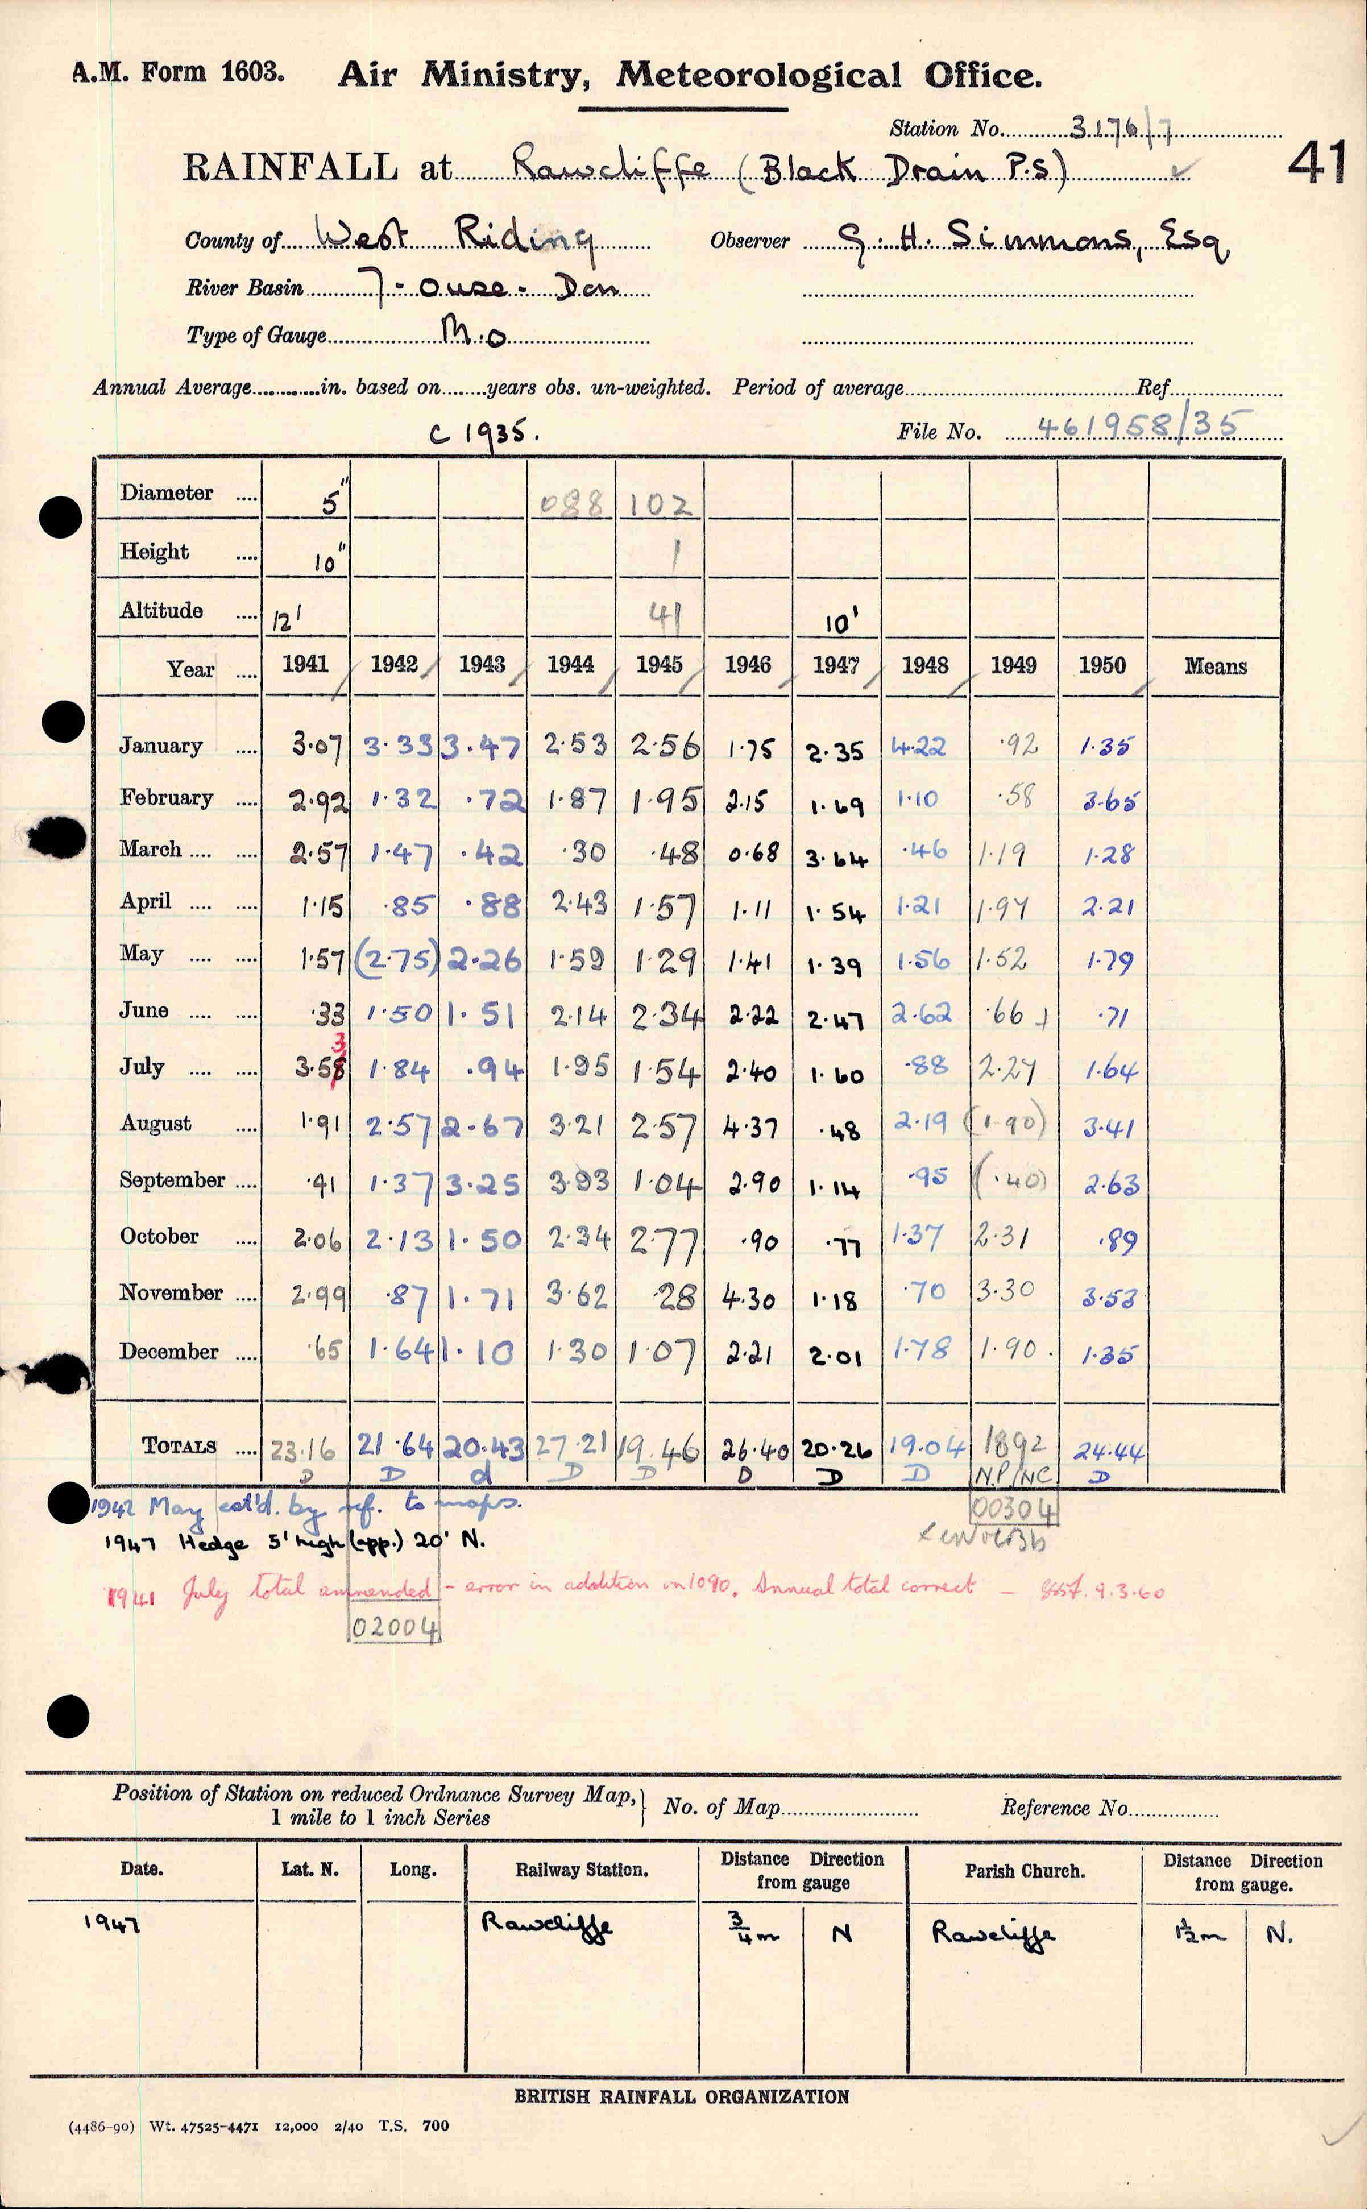 A.M. Form 1603. Air Ministry, Meteorological Office.
Station No. 3176/7
RAINFALL at Rawcliffe (Black Drain P.S) ✓ 41
County of West Riding Observer G. H. Simmons, Esq,
River Basin 7 - Ouse - Don
Type of Gauge M.O
Annual Average............in. based on........years obs. un-weighted. Period of average Ref.
C 1935. File No. 461958/35
Diameter .... 5" 088 102
Height .... 10" 1
Altitude .... 12' 41 10'
Year .... 1941 1942 1943 1944 1945 1946 1947 1948 1949 1950 Means
January .... 3.07 3.33 3.47 2.53 2.56 1.75 2.35 4.22 .92 1.35
February .... 2.92 1.32 .72 1.87 1.95 2.15 1.69 1.10 .58 3.65
March .... .... 2.57 1.47 .42 .30 .48 0.68 3.64 .46 1.19 1.28
April .... .... 1.15 .85 .88 2.43 1.57 1.11 1.54 1.21 1.97 2.21
May .... .... 1.57 (2.75) 2.26 1.59 1.29 1.41 1.39 1.56 1.52 1.79
June .... .... .33 1.50 1.51 2.14 2.34 2.22 2.47 2.62 .66 .71
3
July .... .... 3.58 1.84 .94 1.95 1.54 2.40 1.60 .88 2.27 1.64
August .... 1.91 2.57 2.67 3.21 2.57 4.37 .48 2.19 (1.90) 3.41
September .... .41 1.37 3.25 3.93 1.04 2.90 1.14 .95 (.40) 2.63
October .... 2.06 2.13 1.50 2.34 2.77 .90 .77 1.37 2.31 .89
November .... 2.99 .87 1.71 3.62 .28 4.30 1.18 .70 3.30 3.53
December .... .65 1.64 1.10 1.30 1.07 2.21 2.01 1.78 1.90. 1.35
TOTALS .... 23.16 21.64 20.43 27.21 19.46 26.40 20.26 19.04 1892 24.44
D D d D D D D D N.P/NC D
1942 May est'd. by ref. to maps. 00304
1947 Hedge 5' high (app.) 20' N.
1941 July total ammended - error in addition on 1090. Annual total correct — 9.3.60
02004
Position of Station on reduced Ordnance Survey Map, } No. of Map Reference No.
1 mile to 1 inch Series
Date. Lat. N. Long. Railway Station. Distance from gauge Direction Parish Church. Distance from gauge. Direction
1947 Rawcliffe 3/4 m N Rawcliffe 1½ m N.
BRITISH RAINFALL ORGANIZATION
(4486-90) Wt. 47525-4471 12,000 2/40 T.S. 700